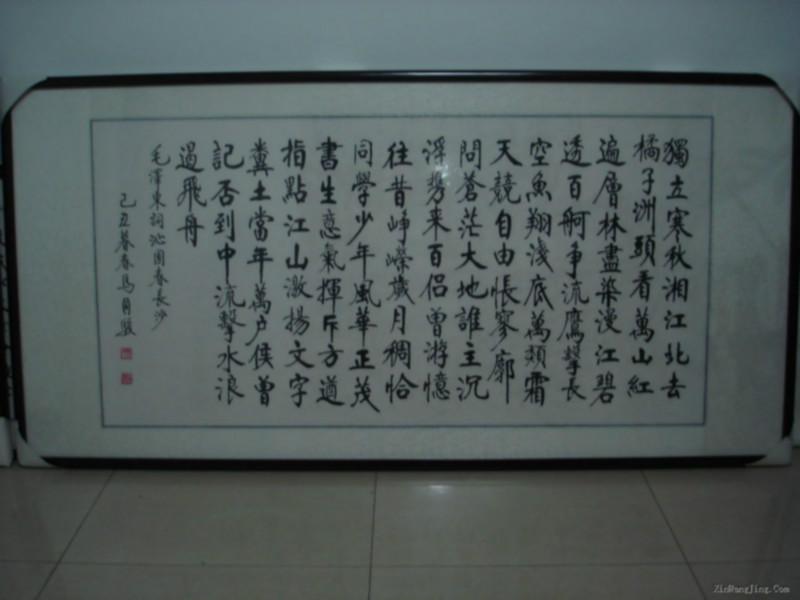 獨立寒秋湘江北去
橘子洲頭看萬山紅
遍層林盡染漫江碧
透百舸争流鷹擊長
空魚翔淺底萬類霜
天競自由悵寥廓
問蒼茫大地誰主沉
浮携来百侣曾游憶
往昔崢嶸歲月稠恰
同學少年風華正茂
書生意氣揮斥方遒
指點江山激揚文字
糞土當年萬户侯曾
記否到中流擊水浪
遏飛舟
毛澤東詞沁園春長沙
己丑暮春馬
ZinHangJing.Com